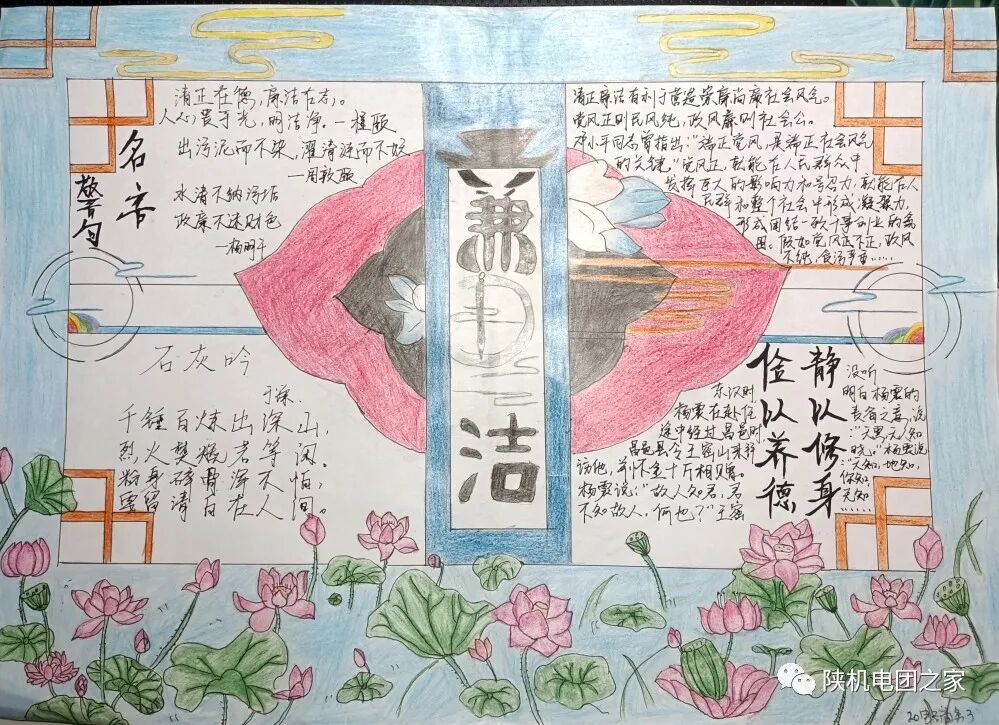 名言
警句
清正在德，廉洁在志。
人心贵于光明洁净。—程颐
出污泥而不染，濯清涟而不妖
—周敦颐
水清不纳污垢
政廉不迷财色
清正廉洁有利于营造崇廉尚廉社会风气。
党风正则民风纯，政风廉则社会公。
邓小平同志曾指出："端正党风，是端正社会风气
的关键"党风正，就能在人民群众中
发挥巨大的影响力和号召力，就能在人
民群和整个社会中形成凝聚力，
形成团结一致干事创业的氛
围。假如党风不正，政风
不纯，贪污严重……
廉
洁
石灰吟
于谦
千锤百炼出深山，
烈火焚烧若等闲，
粉身碎骨浑不怕，
要留清白在人间。
静以修身
俭以养德
东汉时
杨震在赴任
途中经过昌邑时
昌邑县令王密山来拜
访他，并怀金十斤相赠。
杨震说："故人知君，君
不知故人，何也？"王密
没听
明白杨震的
责备之意，说
："天黑，无人知
晓。"杨震说
："天知，地知，
你知
我知
……
陕机电团之家